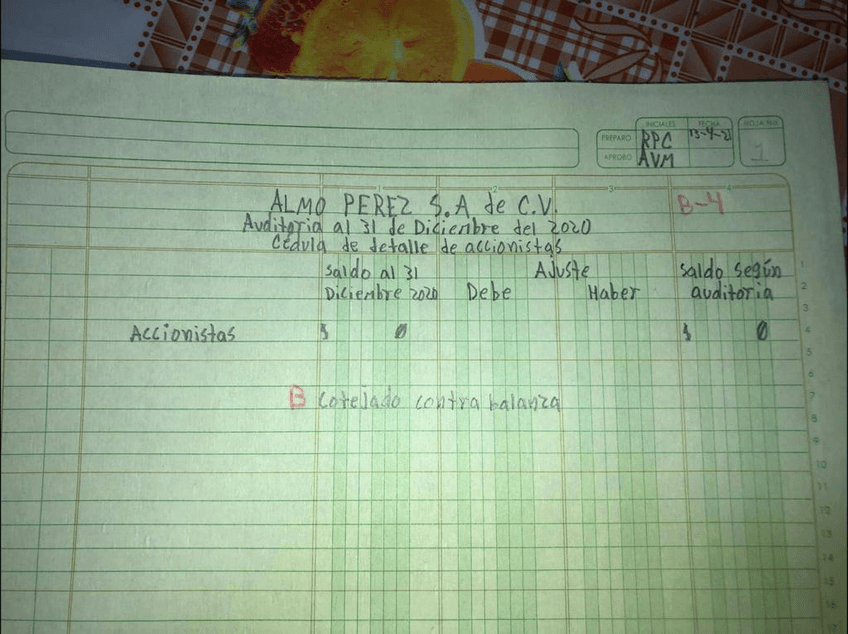 INICIALES FECHA HOJA No.
PREPARO RPC 13-4-21 1
APROBO AVM
1 2 3 4
ALMO PEREZ S.A de C.V. B-4
Auditoria al 31 de Diciembre del 2020
Cédula de detalle de accionistas
Saldo al 31 Ajuste Saldo según 1
Diciembre 2020 Debe Haber auditoria 2
3
Accionistas $ 0 $ 0 4
5
6
B Cotejado contra balanza 7
8
9
10
11
12
13
14
15
16
17